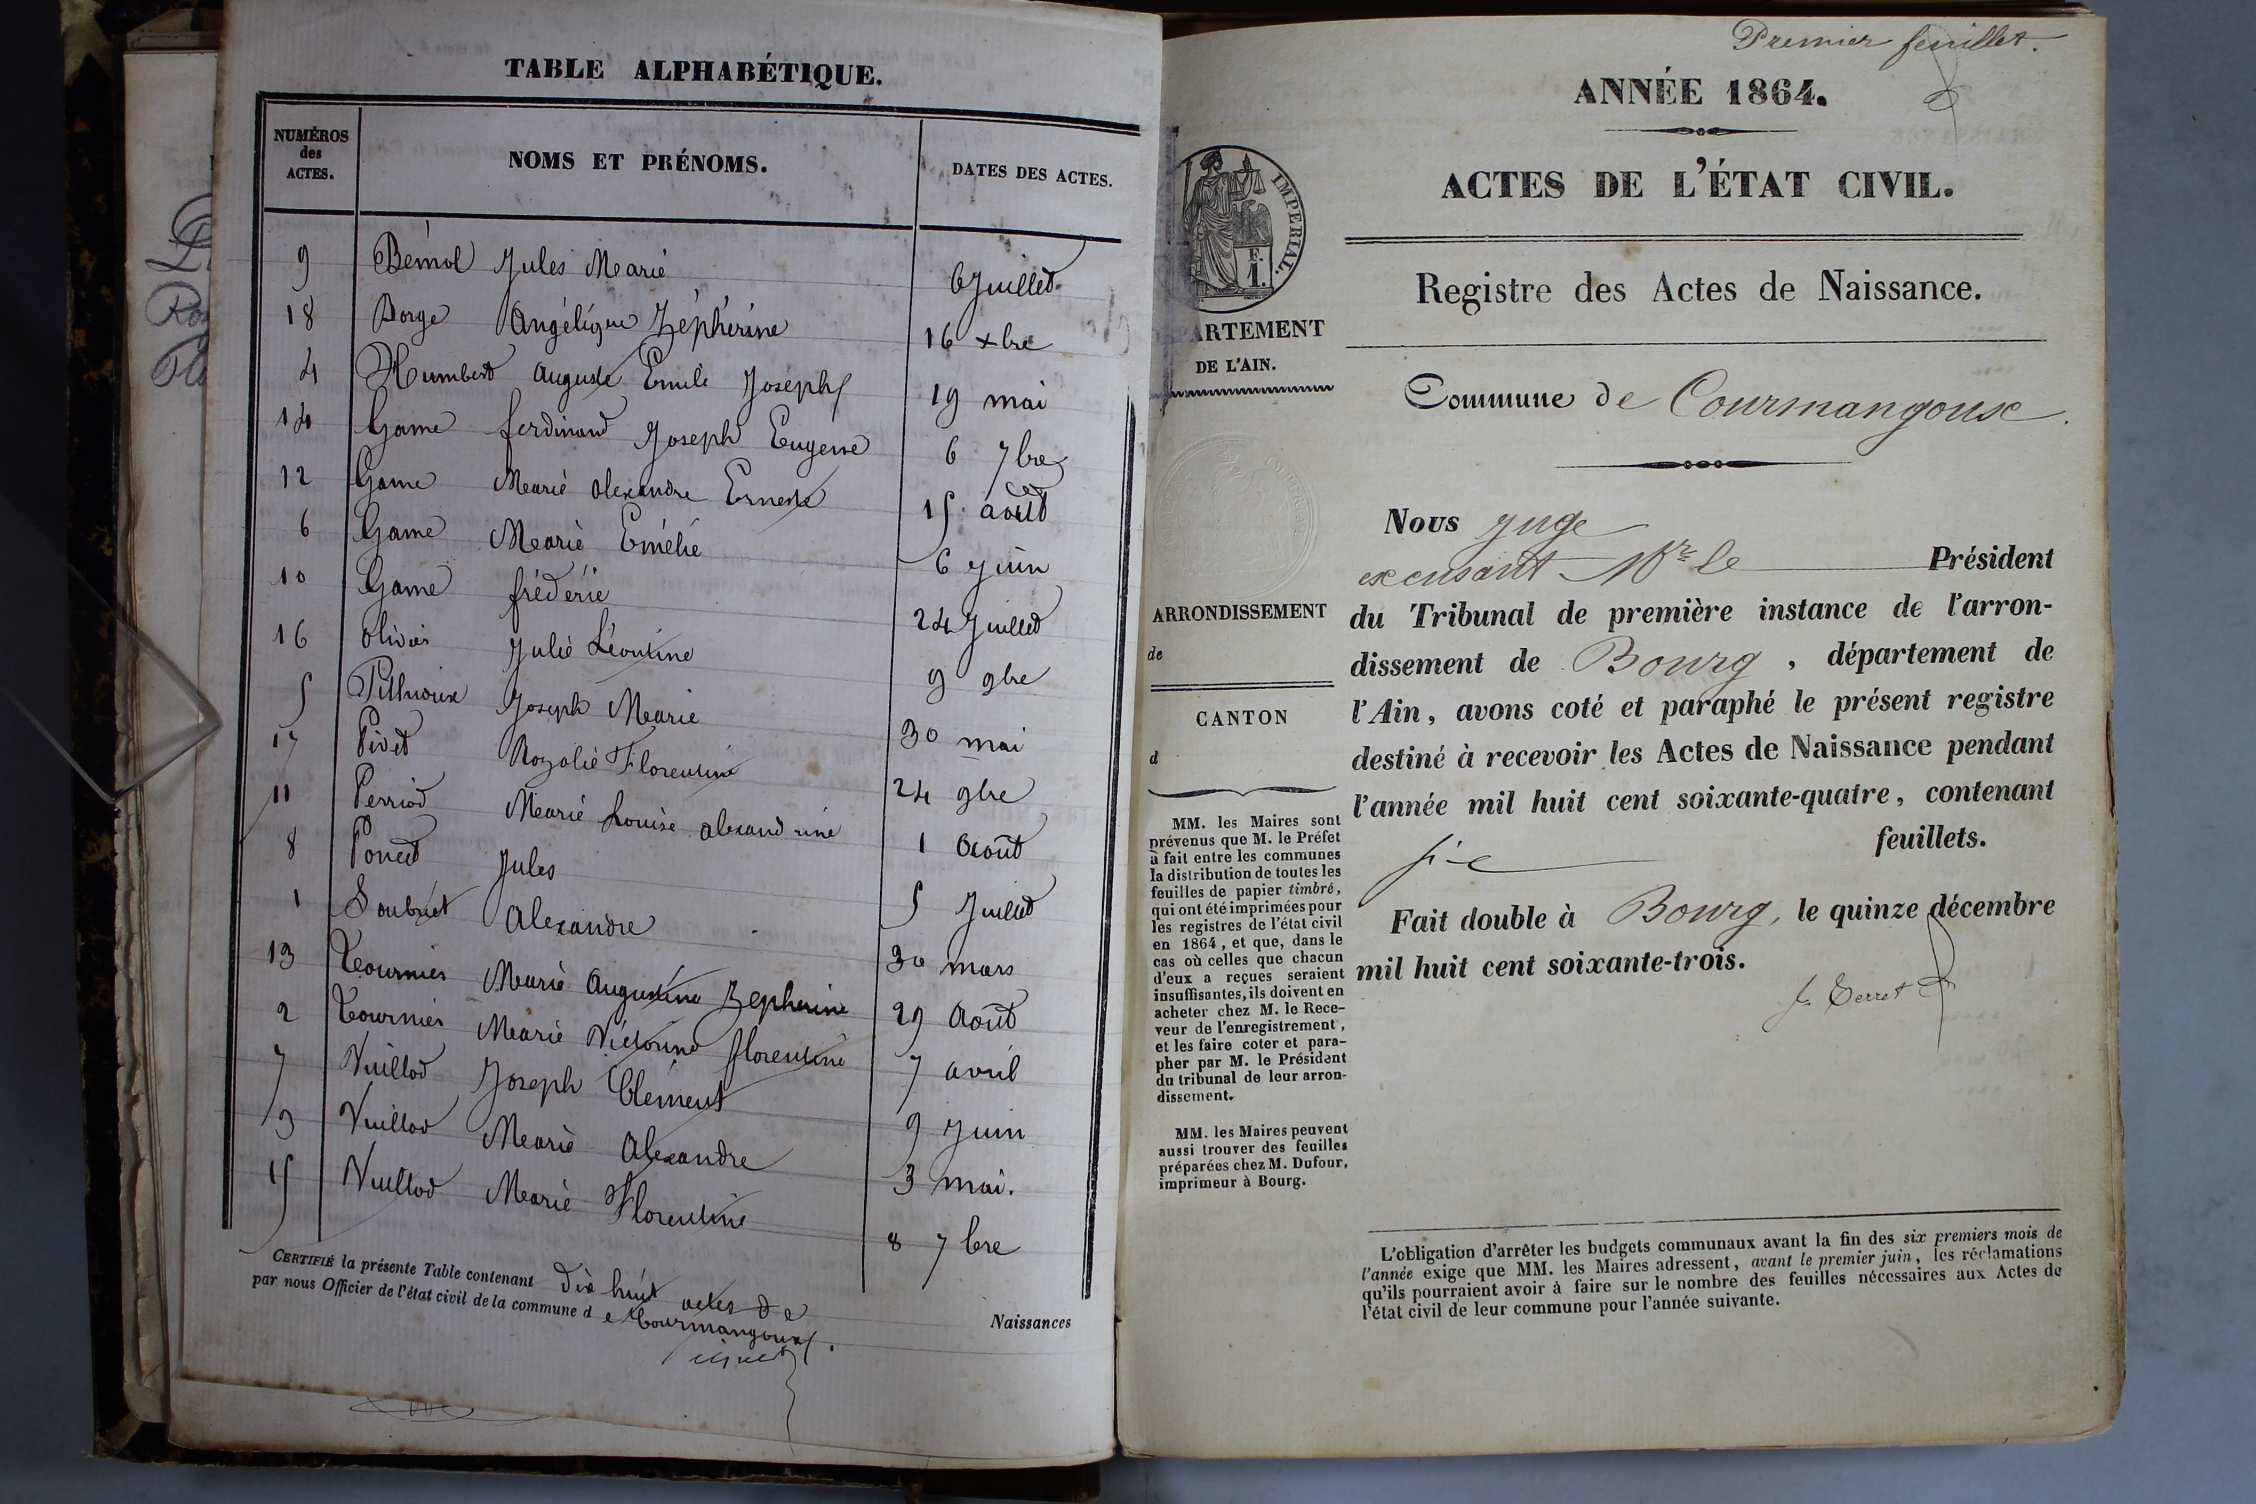 TABLE ALPHABÉTIQUE.
NUMÉROS des ACTES.
NOMS ET PRÉNOMS.
DATES DES ACTES.
9 Bémol Jules Marie 6 Juillet
18 Borge Angélique Zéphérine 16 xbre
4 Humbert auguste Emile Joseph 19 mai
14 Game ferdinand Joseph Eugene 6 7bre
12 Game Marie alexandre Erneste 15 août
6 Game Marie Emélie 6 juin
10 Game fréderic 24 Juillet
16 olivier Julie Léontine 9 9bre
5 Pithioux Joseph Marie 30 mai
17 Pivet Rozalie Florentine 24 9bre
11 Perriod Marie Louise alexandrine 1 Août
8 Poncet Jules 5 Juillet
1 Soubriet Alexandre 30 mars
13 Tournier Marie Augustine Zepherine 29 Août
2 Tournier Marie Victorine florentine 7 avril
7 Vuillod Joseph Clément 9 Juin
3 Vuillod Marie Alexandre 3 mai.
15 Vuillod Marie Florentine 8 7bre
CERTIFIÉ la présente Table contenant dix huit actes de Naissances
par nous Officier de l'état civil de la commune d e Courmangoux.
Premier feuillet.
ANNÉE 1864.
ACTES DE L'ÉTAT CIVIL.
Registre des Actes de Naissance.
Commune de Courmangoux.
IMPERIAL.
F.
1.
ARTEMENT
DE L'AIN.
ARRONDISSEMENT
de
CANTON
d
MM. les Maires sont
prévenus que M. le Préfet
à fait entre les communes
la distribution de toutes les
feuilles de papier timbré,
qui ont été imprimées pour
les registres de l'état civil
en 1864, et que, dans le
cas où celles que chacun
d'eux a reçues seraient
insuffisantes, ils doivent en
acheter chez M. le Rece-
veur de l'enregistrement,
et les faire coter et para-
pher par M. le Président
du tribunal de leur arron-
dissement.
MM. les Maires peuvent
aussi trouver des feuilles
préparées chez M. Dufour,
imprimeur à Bourg.
Nous juge
excusant Mr le Président
du Tribunal de première instance de l'arron-
dissement de Bourg, département de
l'Ain, avons coté et paraphé le présent registre
destiné à recevoir les Actes de Naissance pendant
l'année mil huit cent soixante-quatre, contenant
six feuillets.
Fait double à Bourg, le quinze décembre
mil huit cent soixante-trois.
L'obligation d'arrêter les budgets communaux avant la fin des six premiers mois de
l'année exige que MM. les Maires adressent, avant le premier juin, les réclamations
qu'ils pourraient avoir à faire sur le nombre des feuilles nécessaires aux Actes de
l'état civil de leur commune pour l'année suivante.